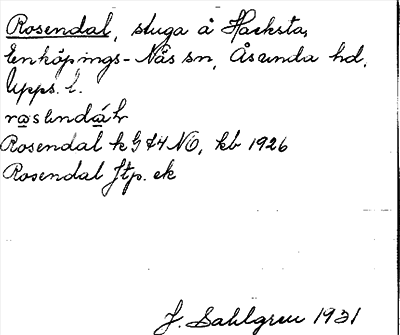 Rosendal, stuga å Hacksta,
Enköpings-Näs sn, Åsunda hd,
Upps. l.
Rosendal k G 84 NO, kb 1926
Rosendal ftp. ek
J. Sahlgren 1931